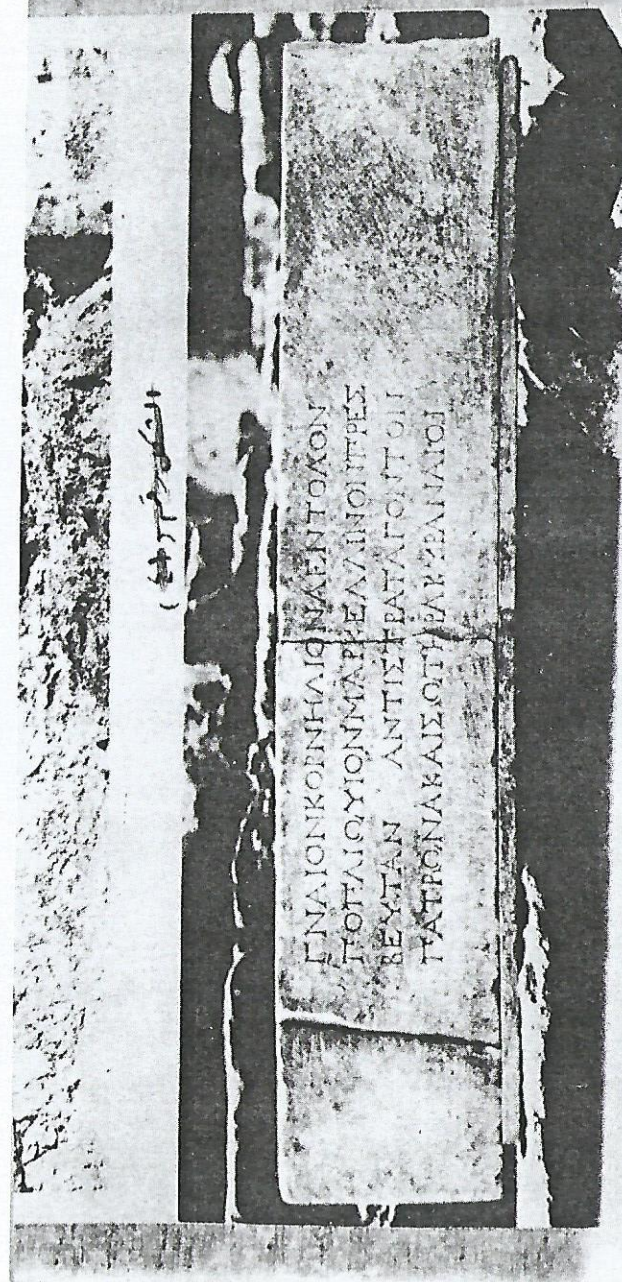 الشكل رقم
ΓΝΑΙΟΝΚΟΡΝΗΛΙΟΝΛΕΝΤΟΛΟΝ
ΠΟΠΛΙΩΥΙΟΝΜΑΡΚΕΛΛΙΝΟΝΠΡΕΣ
ΒΕΥΤΑΝ ΑΝΤΙΣΤΡΑΤΑΓΟΝΤΟΝ
ΠΑΤΡΩΝΑΚΑΙΣΩΤΗΡΑΚΥΡΑΝΑΙΟΙ